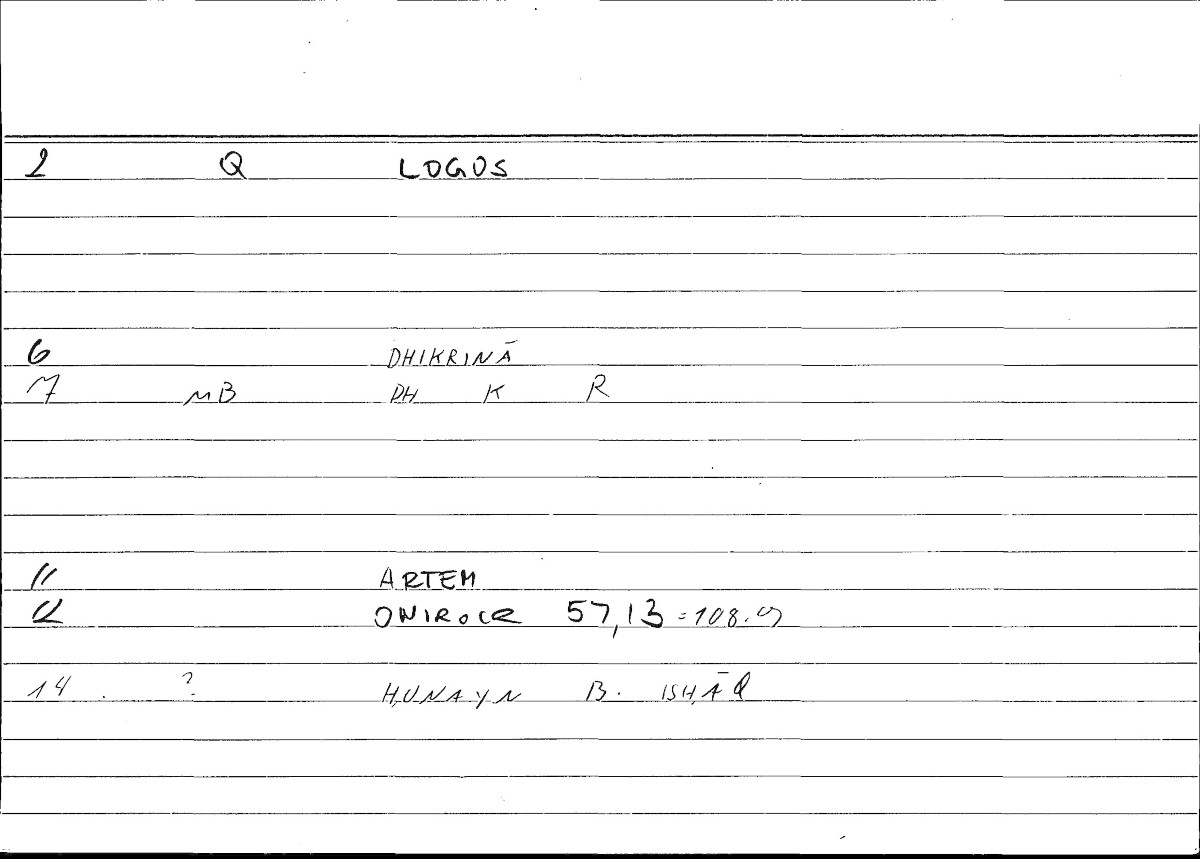 2 Q LOGOS
6 DHIKRINĀ
7 MB DH K R
11 ARTEM
12 ONIROCR 57,13 = 108.9
14 . ? ḤUNAYN B. ISḤĀQ